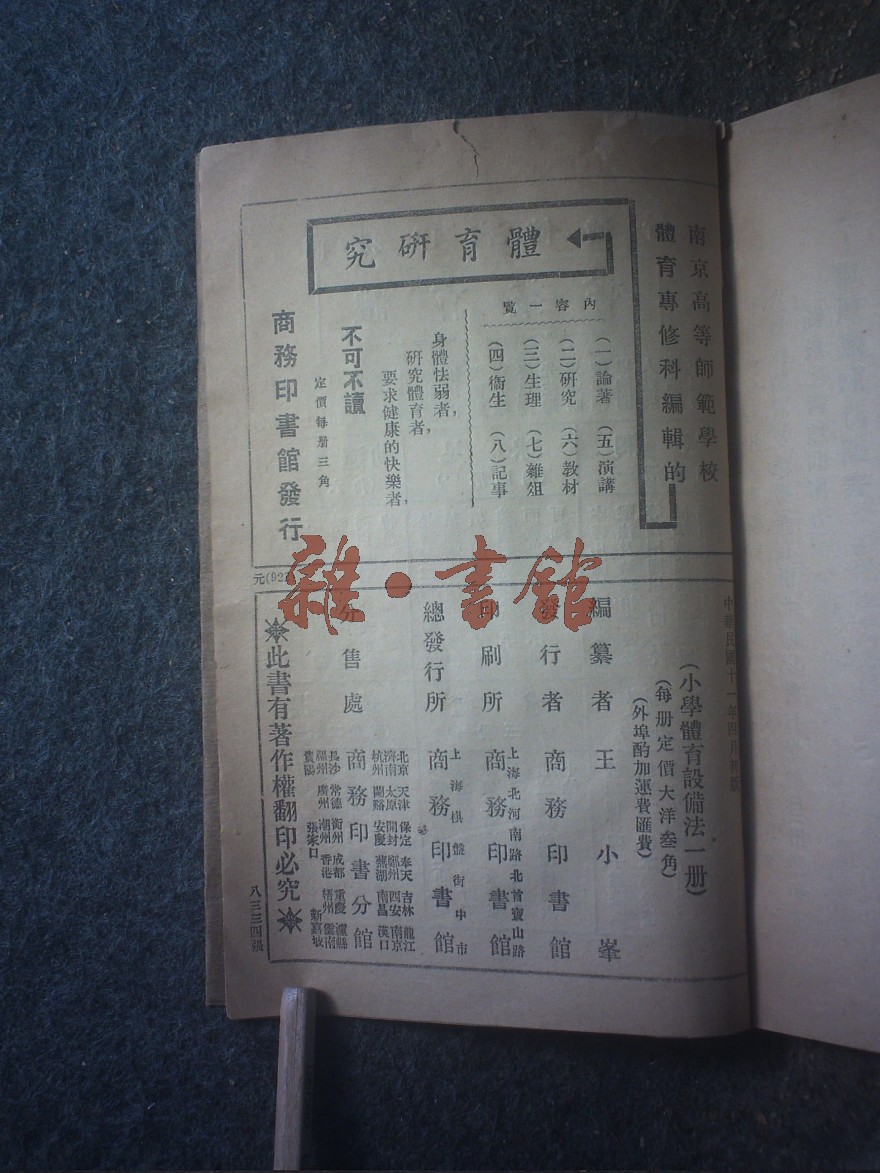 南京高等師範學校
體育專修科編輯的
體育研究
內容一覽
(一)論著 (五)演講
(二)研究 (六)教材
(三)生理 (七)雜俎
(四)衞生 (八)記事
身體怯弱者,
研究體育者,
要求健康的快樂者,
不可不讀
定價每册三角
商務印書館發行
元(92)
中華民國十一年四月初版
(小學體育設備法一册)
(每册定價大洋叁角)
(外埠酌加運費匯費)
編纂者 王小峯
發行者 商務印書館
印刷所 上海北河南路北首寶山路 商務印書館
總發行所 上海棋盤街中市 商務印書館
分售處 商務印書分館
北京 天津 保定 奉天 吉林 龍江
濟南 太原 開封 鄭州 西安 南京
杭州 蘭谿 安慶 蕪湖 南昌 漢口
長沙 常德 衡州 成都 重慶 瀘縣
福州 廣州 潮州 香港 梧州 雲南
貴陽 張家口 新嘉坡
※此書有著作權翻印必究※
八三三四張
雜·書館